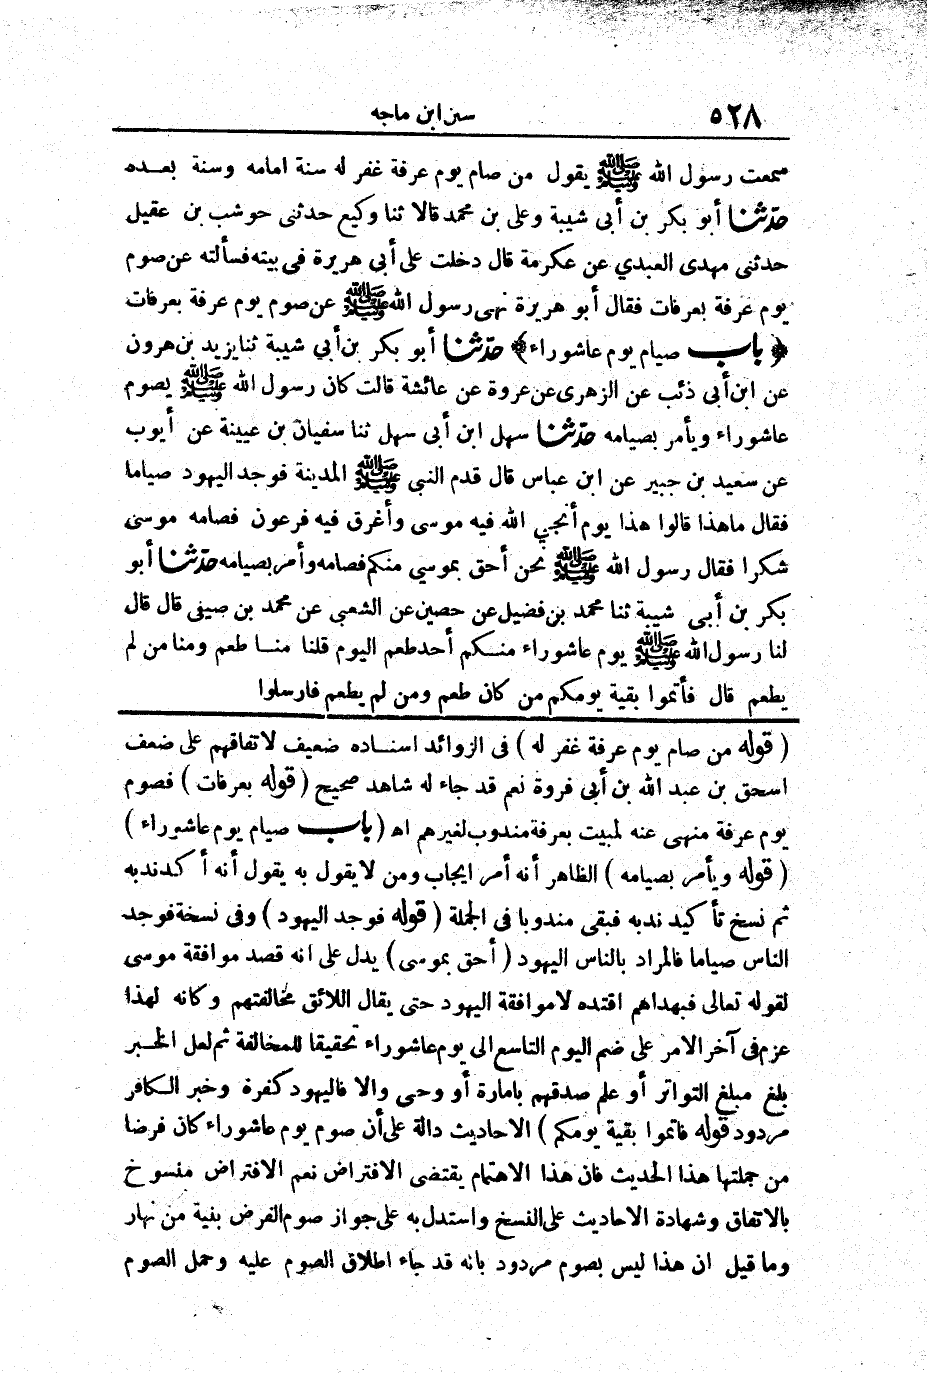 ٥٢٨ سنن ابن ماجه
سمعت رسول الله ﷺ يقول من صام يوم عرفة غفر له سنة امامه وسنة بعــده
حدّثنا أبو بكر بن أبى شيبة وعلى بن محمد قالا ثنا وكيع حدثنى حوشب بن عقيل
حدثنى مهدى العبدي عن عكرمة قال دخلت على أبي هريرة فى بيته فسألته عن صوم
يوم عرفة بعرفات فقال أبو هريرة نهى رسول الله ﷺ عن صوم يوم عرفة بعرفات
﴿ باب صيام يوم عاشوراء ﴾ حدّثنا أبو بكر بن أبي شيبة ثنا يزيد بن هرون
عن ابن أبى ذئب عن الزهرى عن عروة عن عائشة قالت كان رسول الله ﷺ يصوم
عاشوراء ويأمر بصيامه حدّثنا سهل ابن أبى سهل ثنا سفيان بن عيينة عن أيوب
عن سعيد بن جبير عن ابن عباس قال قدم النبى ﷺ المدينة فوجد اليهود صياما
فقال ماهذا قالوا هذا يوم أنجي الله فيه موسى وأغرق فيه فرعون فصامه موسى
شكرا فقال رسول الله ﷺ نحن أحق بموسي منكم فصامه وأمر بصيامه حدّثنا أبو
بكر بن أبى شيبة ثنا محمد بن فضيل عن حصين عن الشعبى عن محمد بن صيفى قال قال
لنا رسول الله ﷺ يوم عاشوراء منــكم أحد طعم اليوم قلنا منــا طعم ومنا من لم
يطعم قال فأتموا بقية يومكم من كان طعم ومن لم يطعم فارسلوا
( قوله من صام يوم عرفة غفر له ) فى الزوائد اسنــاده ضعيف لاتفاقهم على ضعف
اسحق بن عبد الله بن أبى فروة نعم قد جاء له شاهد صحيح ( قوله بعرفات ) فصوم
يوم عرفة منهى عنه لمبيت بعرفة مندوب لغيرهم اه ( باب صيام يوم عاشوراء )
( قوله ويأمر بصيامه ) الظاهر أنه أمر ايجاب ومن لا يقول به يقول أنه أ كد ندبه
ثم نسخ تأ كيد ندبه فبقى مندوبا فى الجملة ( قوله فوجد اليهود ) وفى نسخة فوجد
الناس صياما فالمراد بالناس اليهود ( أحق بموسى ) يدل على انه قصد موافقة موسى
لقوله تعالى فبهداهم اقتده لا موافقة اليهود حتى يقال اللائق مخالفتهم وكانه لهذا
عزم فى آخر الامر على ضم اليوم التاسع الى يوم عاشوراء تحقيقا للمخالفة ثم لعل الخــبر
بلغ مبلغ التواتر أو علم صدقهم بامارة أو وحى والا فاليهود كفرة وخبر الــكافر
مردود قوله فاتموا بقية يومكم ) الاحاديث دالة على أن صوم يوم عاشوراء كان فرضا
من جملتها هذا الحديث فان هذا الاهتمام يقتضى الافتراض نعم الافتراض منسوخ
بالاتفاق وشهادة الاحاديث على النسخ واستدل به على جواز صوم الفرض بنية من نهار
وما قيل ان هذا ليس بصوم مردود بانه قد جاء اطلاق الصوم عليه وحمل الصوم